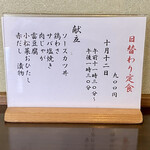 日替わり定食
九〇〇円
十月十二日
午前十一時三〇分~
午後一時三〇分
献立
ソースカツ丼
鶏わさ
サバ塩焼き
肉じゃが
雷豆腐
小松菜おひたし
赤だし 漬物